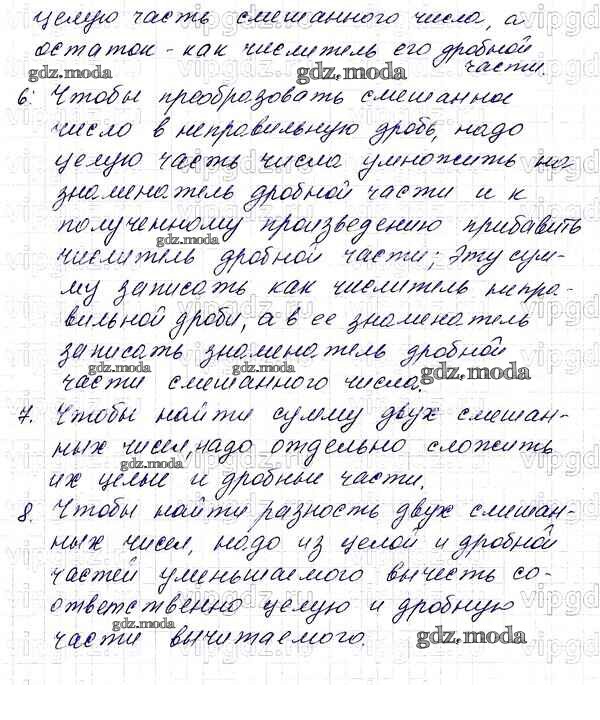 целую часть смешанного числа, а
остаток - как числитель его дробной
части.
gdz.moda gdz.moda
6. Чтобы преобразовать смешанное
число в неправильную дробь, надо
целую часть числа умножить на
знаменатель дробной части и к
полученному произведению прибавить
gdz.moda
числитель дробной части; Эту сум-
му записать как числитель непра-
вильной дроби, а в ее знаменатель
записать знаменатель дробной
gdz.moda gdz.moda gdz.moda
части смешанного числа.
7. Чтобы найти сумму двух смешан-
ных чисел, надо отдельно сложить
gdz.moda
их целые и дробные части.
8. Чтобы найти разность двух смешан-
ных чисел, надо из целой и дробной
частей уменьшаемого вычесть со-
ответственно целую и дробную
gdz.moda
части вычитаемого.
gdz.moda